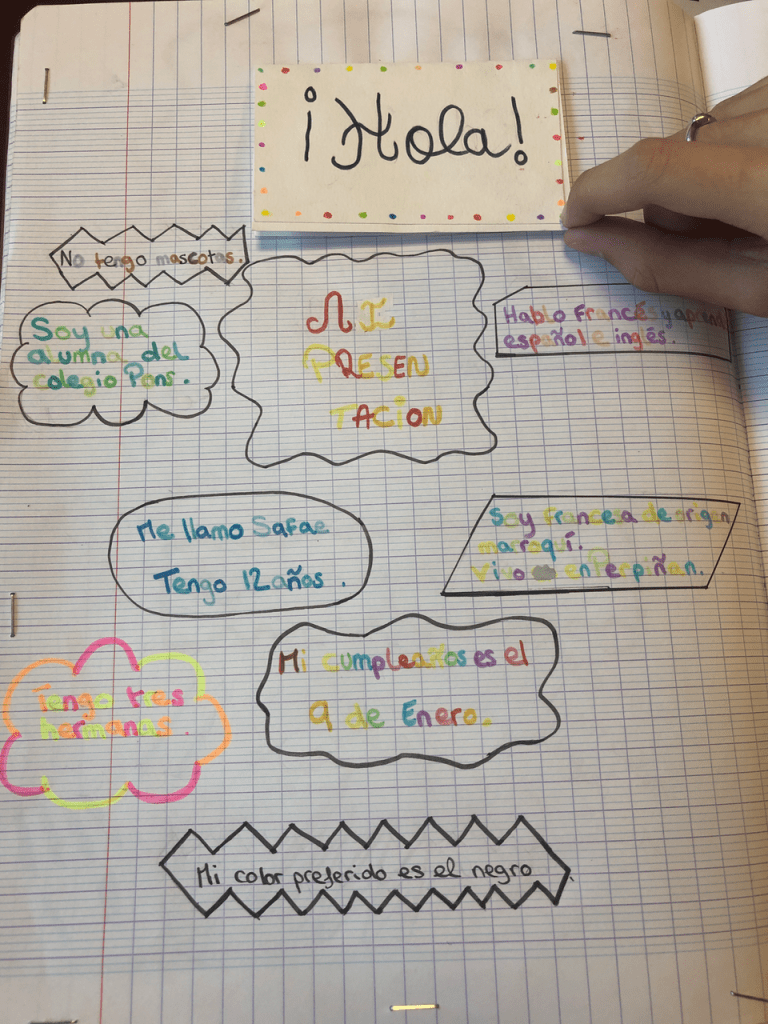 ¡Hola!
No tengo mascotas.
MI
PRESEN
TACiON
Hablo Francés y aprendo
español e inglés.
Soy una
alumna del
colegio Pons.
Me llamo Safae
Tengo 12 años.
Soy francesa de origen
marroquí.
Vivo en Perpiñan.
Mi cumpleaños es el
9 de Enero.
Tengo tres
hermanas.
Mi color preferido es el negro